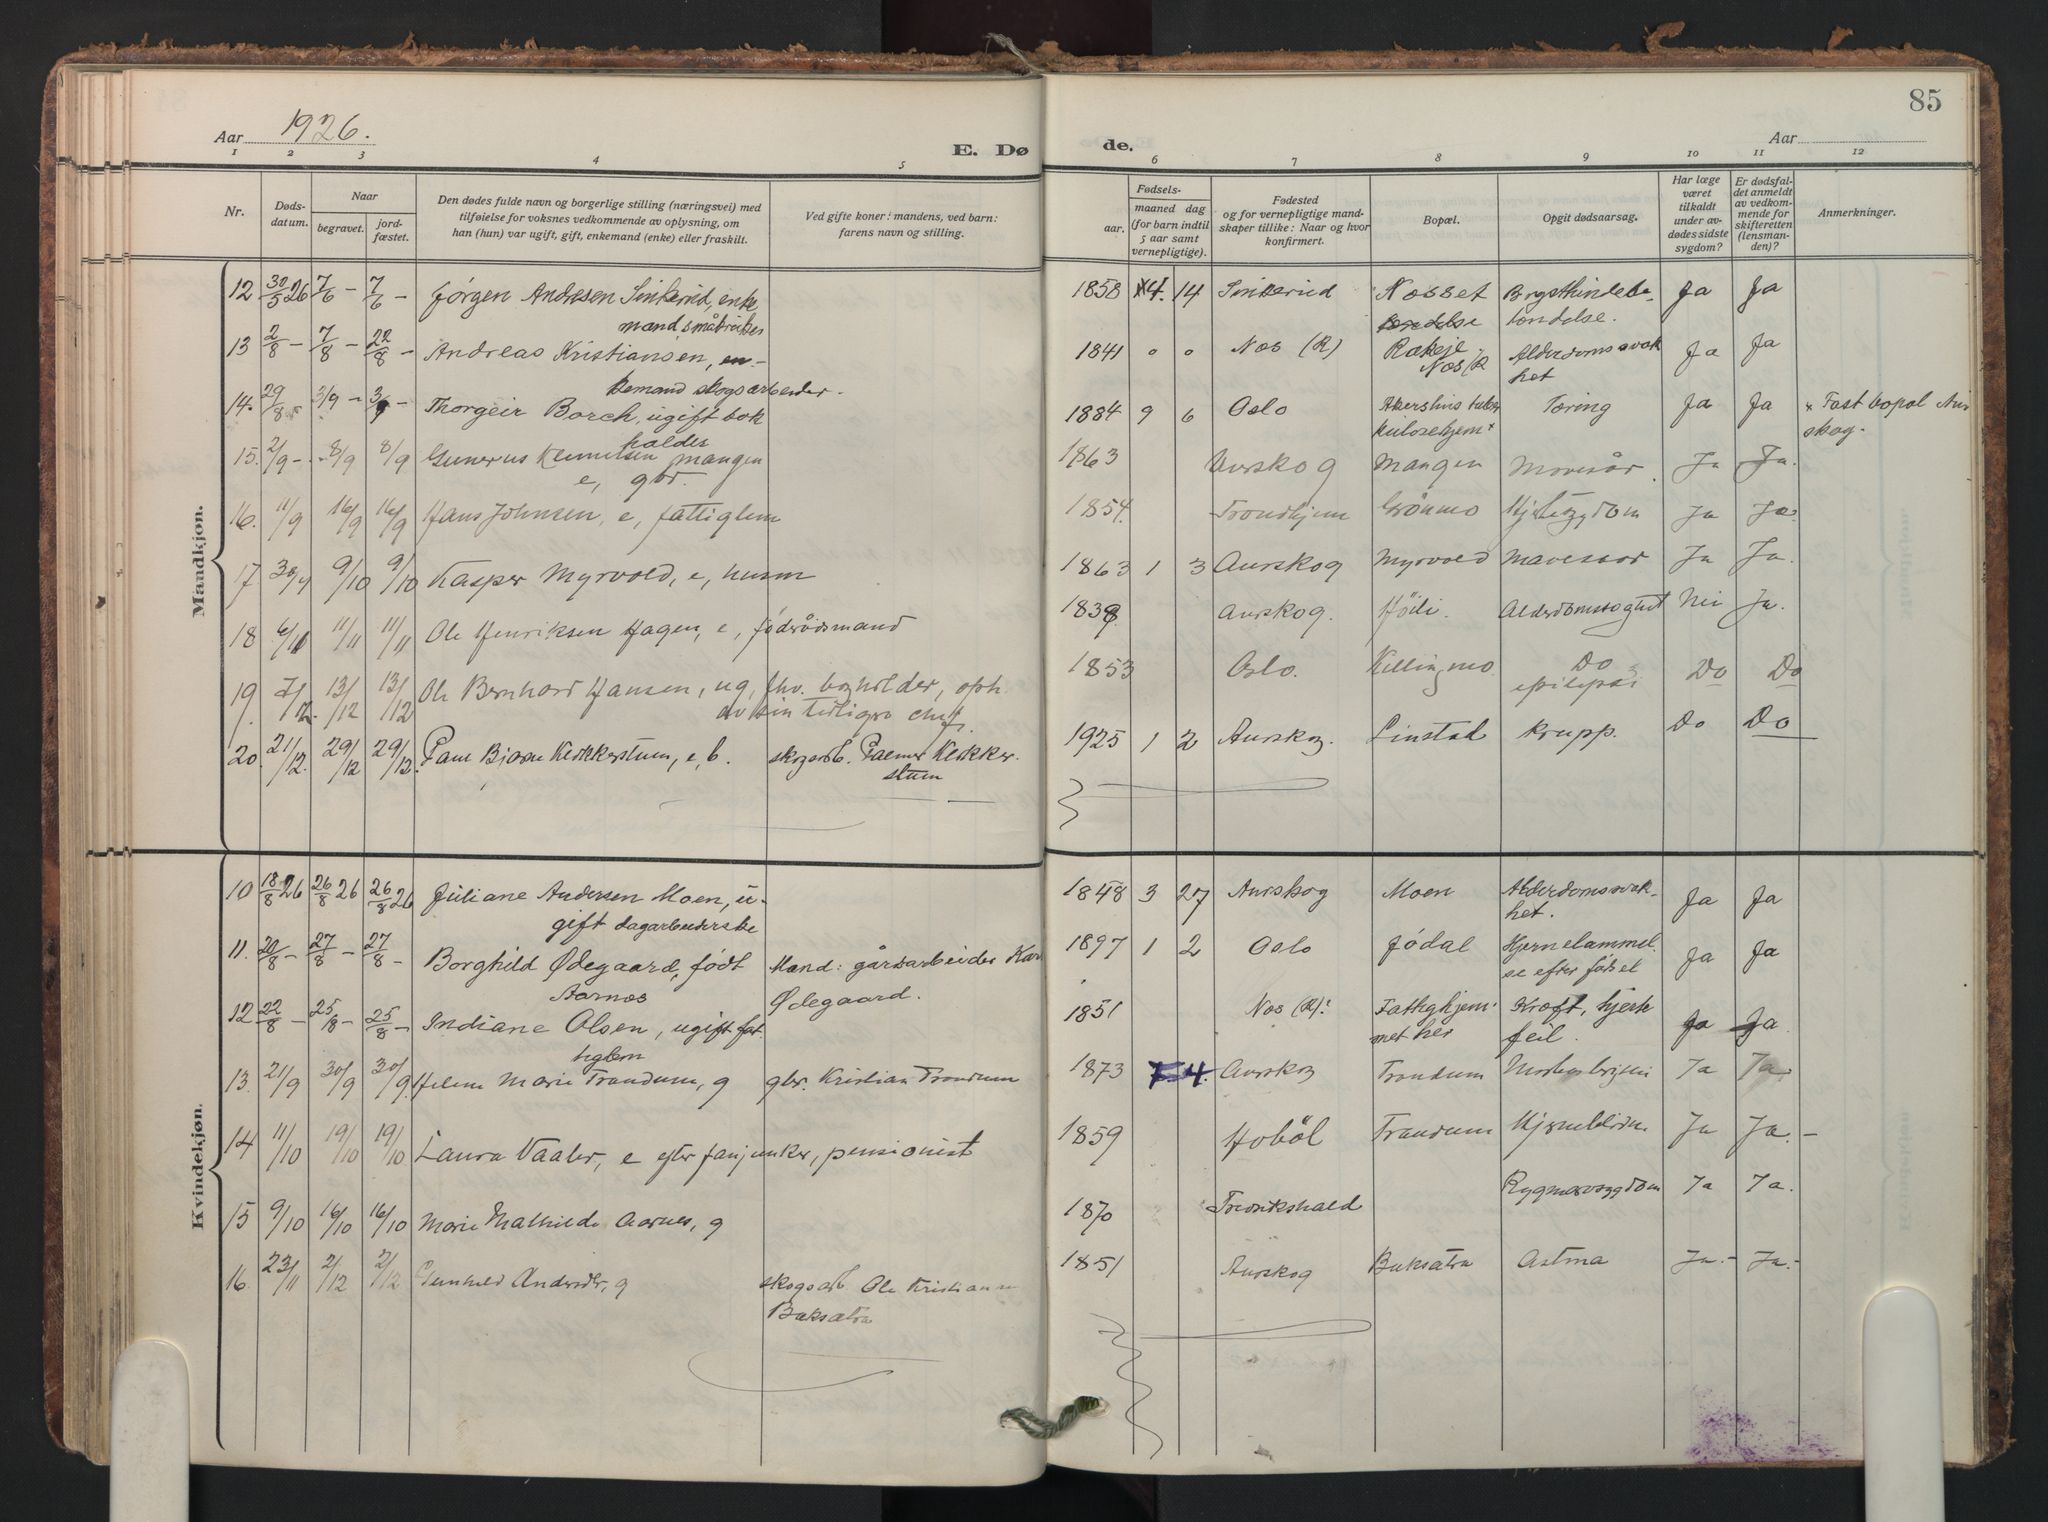 85
Aar 1926.
E. Dø
de.
Aar
1 2 3 4 5 6 7 8 9 10 11 12
Nr.
Døds-
datum.
Naar
begravet.
jord-
fæstet.
Den dødes fulde navn og borgerlige stilling (næringsvei) med
tilføielse for voksnes vedkommende av oplysning, om
han (hun) var ugift, gift, enkemand (enke) eller fraskilt.
Ved gifte koner: mandens, ved barn:
farens navn og stilling.
Fødsels-
aar.
maaned dag
(for barn indtil
5 aar samt
vernepligtige).
Fødested
og for vernepligtige mand-
skaper tillike: Naar og hvor
konfirmert.
Bopæl.
Opgit dødsaarsag.
Har læge
været
tilkaldt
under av-
dødes sidste
sygdom?
Er dødsfal-
det anmeldt
av vedkom-
mende for
skifteretten
(lensman-
den)?
Anmerkninger.
Mandkjøn.
12 30/5 26 7/6 - 7/6 - Jørgen Andresen Sinkerud, enke 1858 4. 14 Sinkerud Nosset Brysthindebe- Ja Ja
mand småbruker tendelse.
13 2/8 - 7/8 - 22/8 - Andreas Kristiansen, en- 1841 " " Nes (R) Rakeie Alderdomssvak Ja Ja
kemand skogsarbeider. Nes/R het
14. 29/8 - 3/9 - 3/9 - Thorgeir Borch, ugift bok 1884 9 6 Oslo Akershus tuber Tæring Ja Ja x Fast bopæl Aur
holder kulosehjem x skog.
15. 2/9 - 8/9 8/9 Gunerus Knudsen Mangen 1863 Aurskog Mangen Mavesår. Ja Ja.
e, gbr.
16. 11/9 16/9 16/9 Hans Johnsen, e, fattiglem 1854. Trondhjem Grönmo Hjertesygdom Ja Ja.
17 30/9 9/10 9/10 Kasper Myrvold, e, husm 1863 1 3 Aurskog Myrvold Mavesaar Ja Ja.
18 6/11 11/11 11/11 Ole Henriksen Hagen, e, föderådsmand 1838 Aurskog. Höili. Nei Ja.
19. 7/12. 13/12 13/12 Ole Bernhard Hansen, ug, fhv. bogholder, oph. 1853 Oslo. Killingmo Do Do Do
av sin tidligere chef. epilepsi
20. 21/12. 29/12 29/12. Paul Bjarne Kirkkerstuen, e, b. skogarb. Palmer Kirkker- 1925 1 2 Aurskog. Linstad Krupp. Do Do
stuen
Kvindekjøn.
10 18/8 26 26/8 26 26/8 26 Juliane Andersen Moen, u- 1848 3 27 Aurskog Moen Alderdomssvak- Ja Ja
gift dagarbeiderske het.
11. 20/8 - 27/8 - 27/8 - Borghild Ødegaard, født Mand: gårdsarbeider Kar 1897 1 2 Oslo Jødal Hjernelammel- Ja Ja
Aarnes Ødegaard. se efter fødsel
12 22/8 - 25/8 - 25/8 - Indiane Olsen, ugift fat- 1851 Nes (R). Fattighjem- Kræft, hjerte Ja Ja
tiglem met her feil.
13. 21/9 30/9 30/9. Helene Marie Trandum, g gbr. Kristian Trandum 1873 4. Aurskog Trandum Ja Ja.
14 11/10 19/10 19/10 Laura Vaaler, e efter fanjunker, pensionist 1859 Hoböl Trandum Ja Ja. -
15 9/10 16/10 16/10 Marie Mathilde Aarnes, g 1870 Fredrikshald Rygmarvsygdom Ja Ja.
16. 23/11 2/12 2/12 Gunhild Andersdtr, g skogsarb Ole Kristiansen 1851 Aurskog Buksætra Astma Ja.- Ja.-
Buksætra